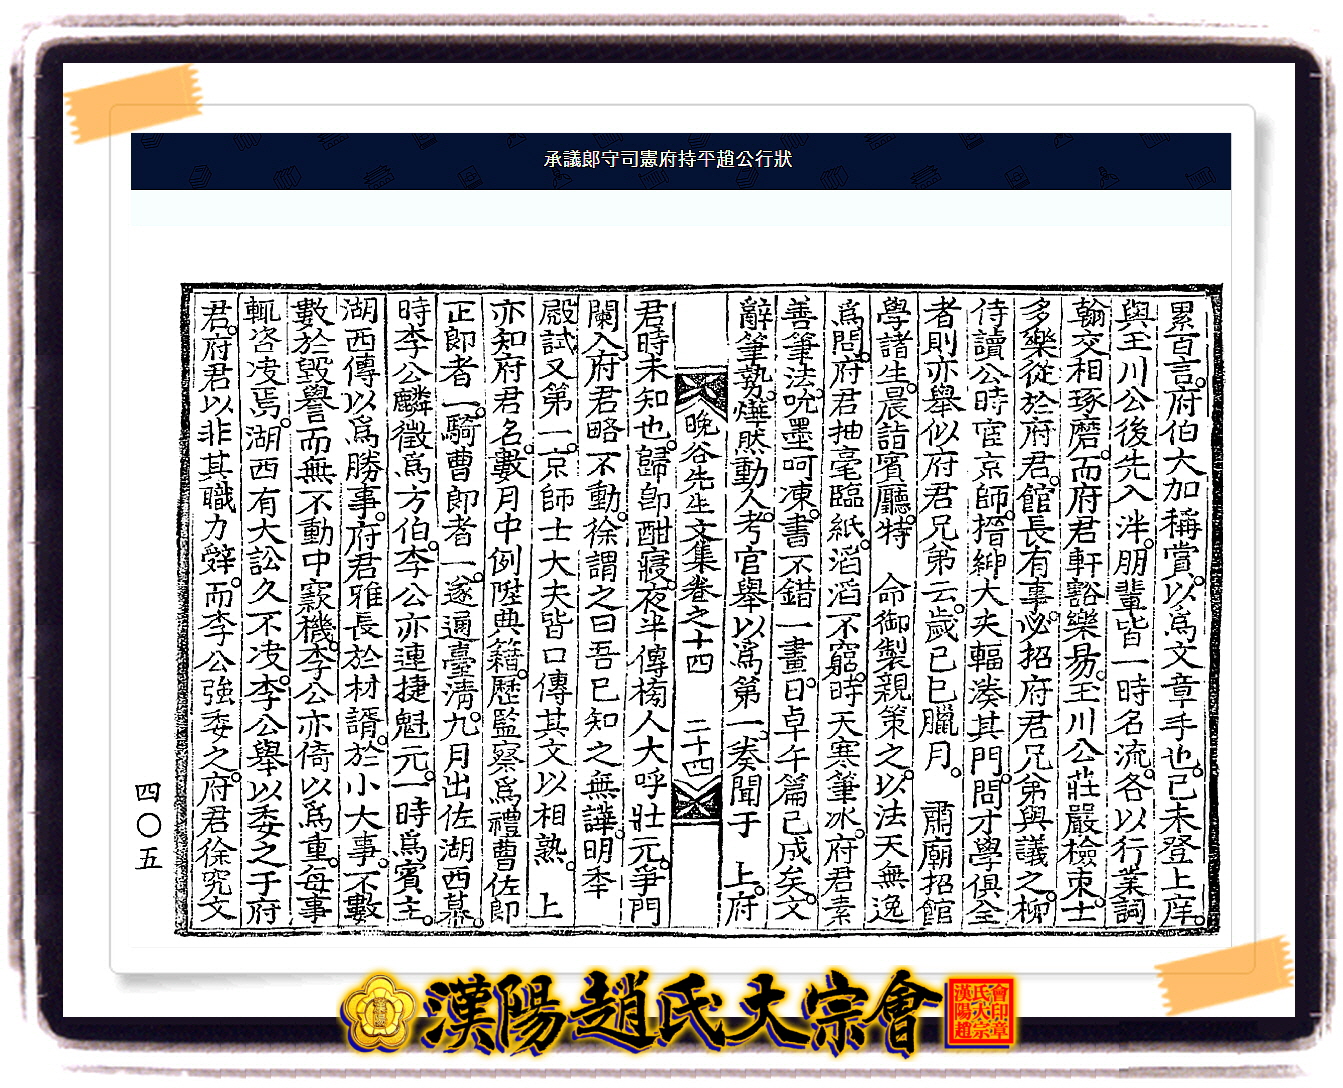 承議郞守司憲府持平趙公行狀
累百言。府伯大加稱賞。以爲文章手也。己未登上庠。
與玉川公後先入泮。朋輩皆一時名流。各以行業詞
翰交相琢磨。而府君軒豁樂易。玉川公莊嚴檢束。士
多樂從於府君。館長有事。必招府君兄弟與議之。柳
侍讀公時宦京師。搢紳大夫輻湊其門。問才學俱全
者則亦舉似府君兄弟云。歲己巳臘月。 肅廟招館
學諸生。晨詣賓廳。特 命御製親策之。以法天無逸
爲問。府君抽毫臨紙。滔滔不窮。時天寒筆冰。府君素
善筆法。吮墨呵凍。書不錯一畫。日卓午篇已成矣。文
辭筆勢。燁然動人。考官舉以爲第一。奏聞于 上。府
晚谷先生文集卷之十四 二十四
君時未知也。歸卽酣寢。夜半傳榜人大呼壯元。爭門
闌入。府君略不動。徐謂之曰吾已知之無譁。明年
殿試又第一。京師士大夫皆口傳其文以相熟。 上
亦知府君名。數月中例陞典籍。歷監察爲禮曹佐郞
正郞者一。騎曹郞者一。遂通臺淸。九月出佐湖西幕。
時李公麟徵爲方伯。李公亦連捷魁元。一時爲賓主。
湖西傳以爲勝事。府君雅長於材諝。於小大事。不數
數於毀譽而無不動中窾機。李公亦倚以爲重。每事
輒咨决焉。湖西有大訟久不决。李公舉以委之于府
君。府君以非其職力辭。而李公強委之。府君徐究文
四〇五
漢陽趙氏大宗會
漢陽
漢陽趙氏大宗會印章